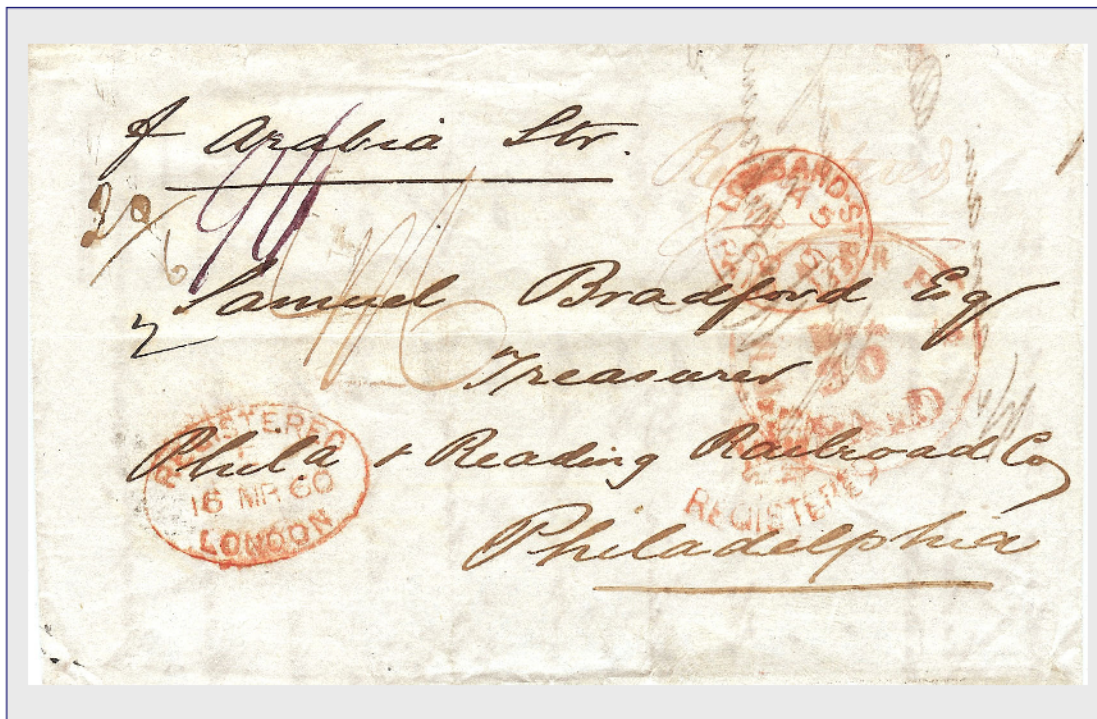 p Arabia Str.
Registered
LOMBARD-ST
Samuel Bradford Esq
Treasurer
Phila & Reading Railroad Co
Philadelphia
REGISTERED
16 MR 60
LONDON
PAID
REGISTERED